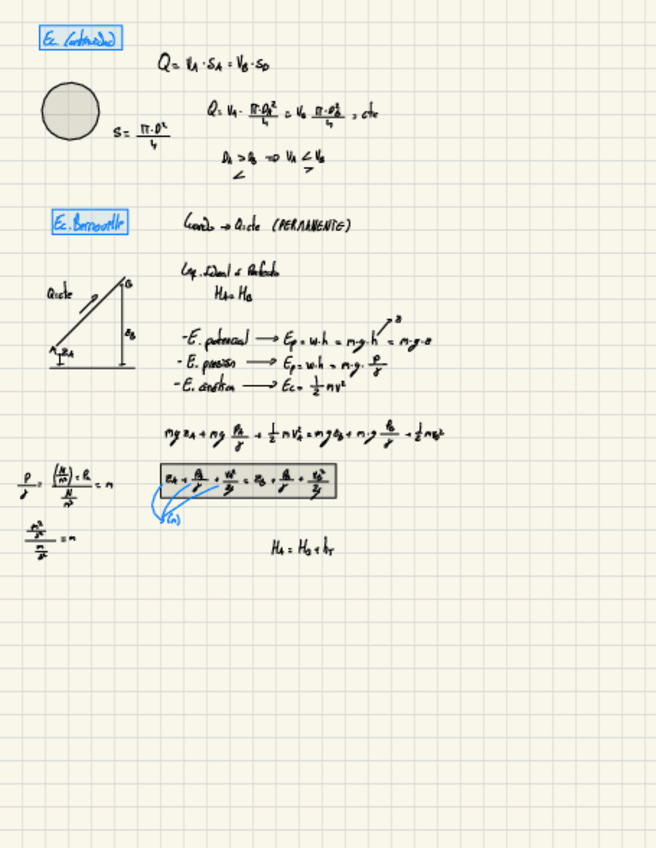 Ec. Continuidad
Q = V_A · S_A = V_B · S_B
S = π·D²/4
Q = V_A · π·D_A²/4 = V_B · π·D_B²/4 = cte
D_A > D_B ⇒ V_A < V_B
< >
Ec. Bernouille
→ Q=cte (PERMANENTE)
Liq. Ideal o Perfecto
H_A = H_B
Q=cte
A B
Z_A Z_B
- E. potencial → Ep = w·h = m·g·h = m·g·z
z
- E. presión → Ep = w·h = m·g· P/γ
- E. cinética → Ec = 1/2 mv²
mg z_A + mg P_A/γ + 1/2 m V_A² = mg z_B + m·g P_B/γ + 1/2 m v_B²
P/γ = (N/m²) = Pa / N/m³ = m
z_A + P_A/γ + V_A²/2g = z_B + P_B/γ + V_B²/2g
(m)
m²/s² / m/s² = m
H_A = H_B + h_T